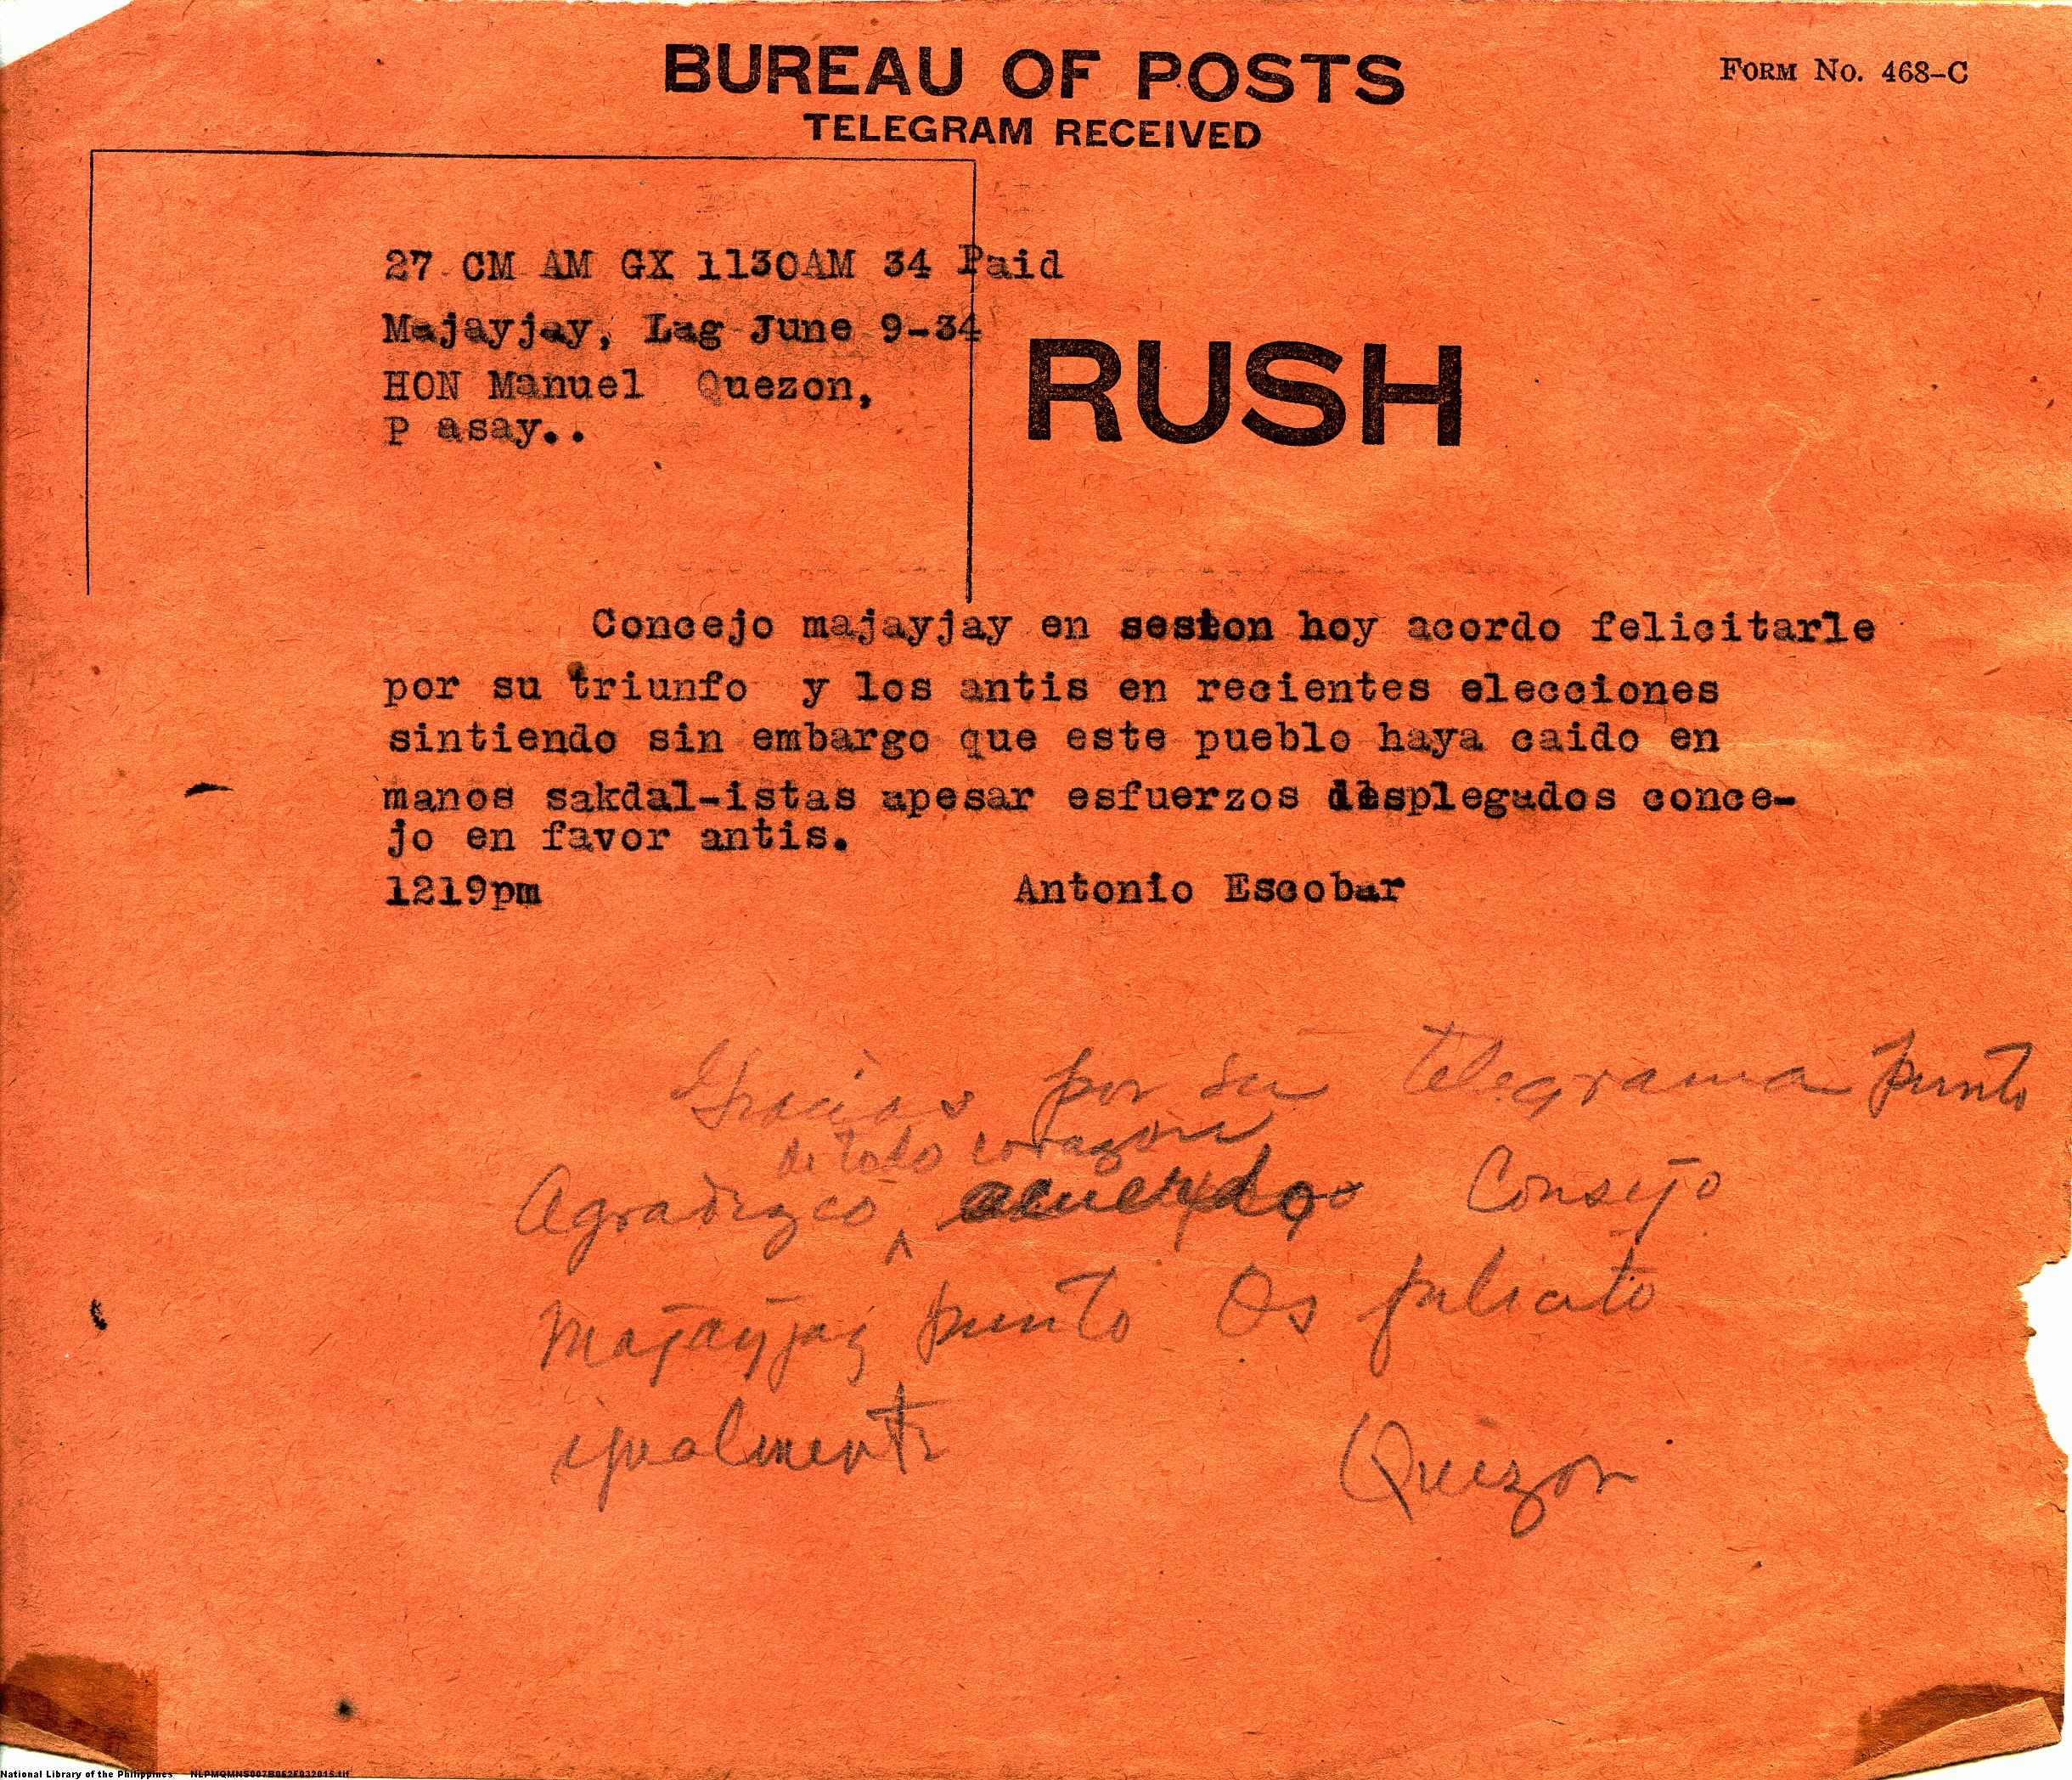 BUREAU OF POSTS
FORM No. 468-C
TELEGRAM RECEIVED
27 CM AM GX 1130AM 34 Paid
Majayjay, Lag June 9-34
HON Manuel Quezon,
P asay..
RUSH
Concejo majayjay en sesion hoy acordo felicitarle
por su triunfo y los antis en recientes elecciones
sintiendo sin embargo que este pueblo haya caido en
manos sakdal-istas apesar esfuerzos desplegados conce-
jo en favor antis.
1219pm Antonio Escobar
Gracias por su telegrama punto
de todo corazon
Agradezco acuerdo Consejo
Majayjay punto Os felicito
igualmente Quezon
National Library of the Philippines NLPMQMNS007B052F032015.tif